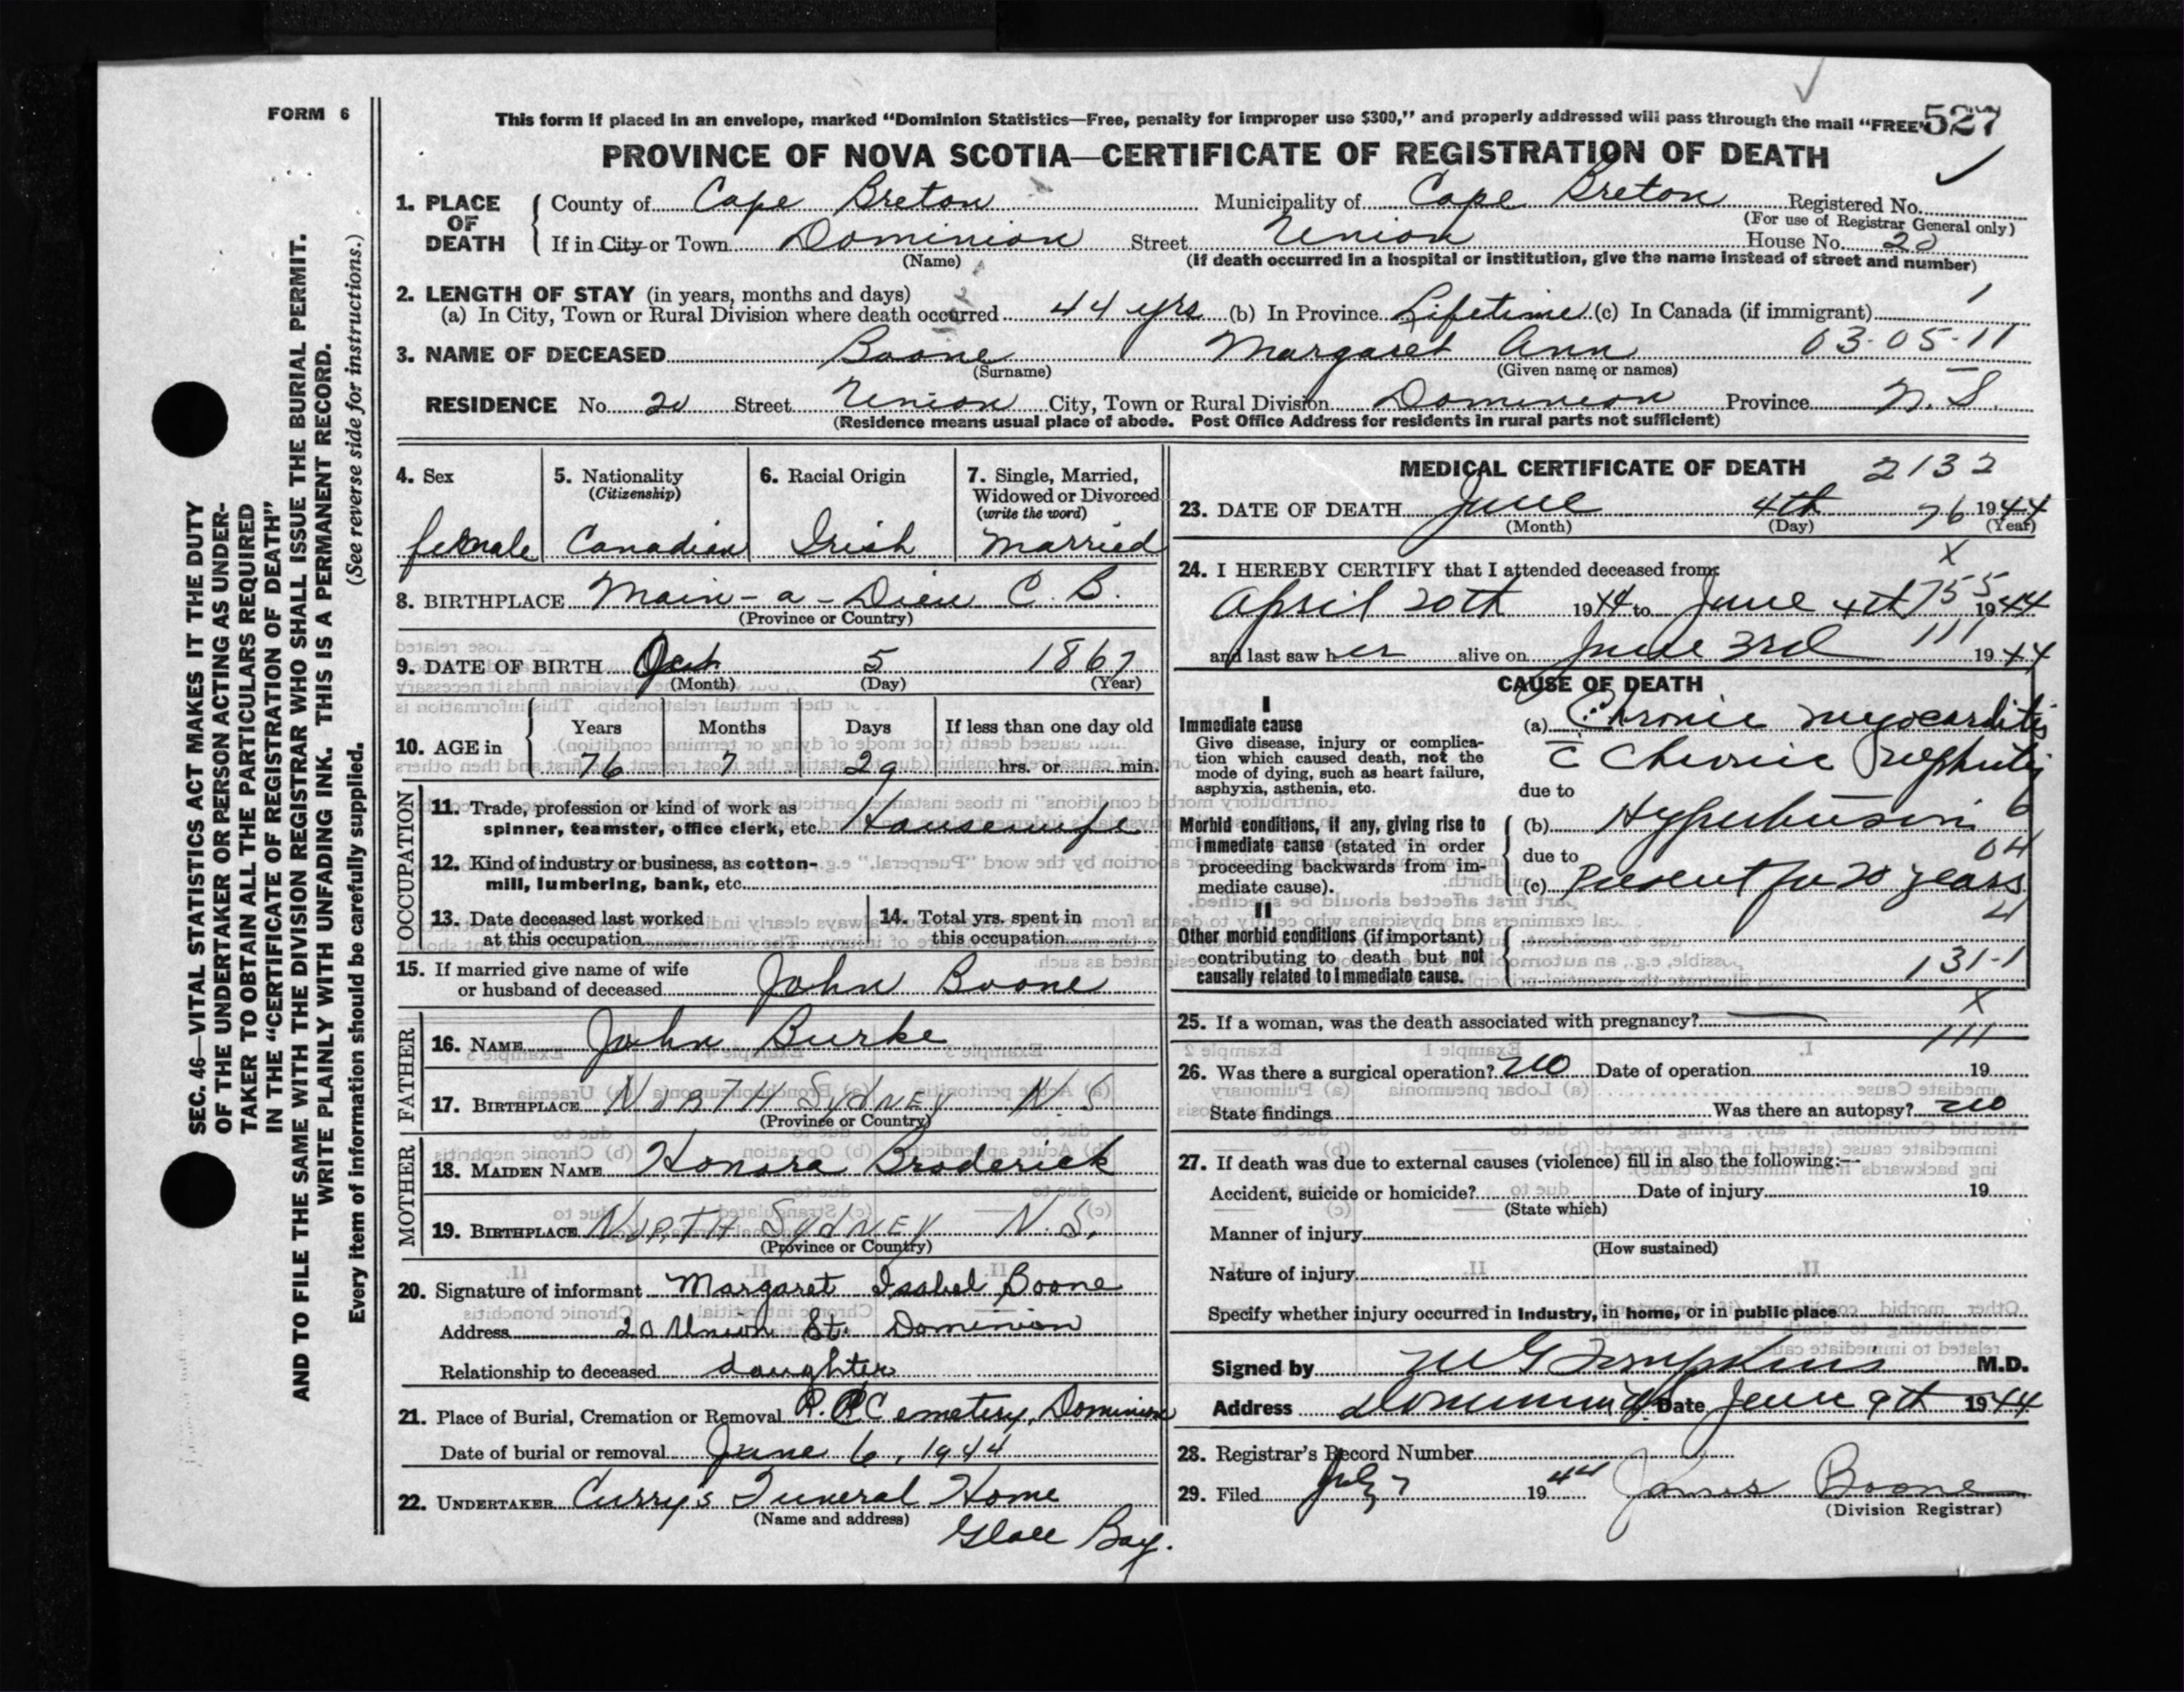 FORM 6
This form if placed in an envelope, marked “Dominion Statistics—Free, penalty for improper use $300,” and properly addressed will pass through the mail “FREE”
527
PROVINCE OF NOVA SCOTIA—CERTIFICATE OF REGISTRATION OF DEATH
1. PLACE OF DEATH
County of Cape Breton Municipality of Cape Breton Registered No.
(For use of Registrar General only)
If in City or Town Dominion Street Union House No. 20
(Name) (If death occurred in a hospital or institution, give the name instead of street and number)
2. LENGTH OF STAY (in years, months and days)
(a) In City, Town or Rural Division where death occurred 44 yrs (b) In Province Lifetime (c) In Canada (if immigrant)
3. NAME OF DECEASED Boone Margaret Ann 03-05-11
(Surname) (Given name or names)
RESIDENCE No. 20 Street Union City, Town or Rural Division Dominion Province N.S.
(Residence means usual place of abode. Post Office Address for residents in rural parts not sufficient)
4. Sex
female
5. Nationality
(Citizenship)
Canadian
6. Racial Origin
Irish
7. Single, Married,
Widowed or Divorced
(write the word)
Married
8. BIRTHPLACE Main-a-Dieu C. B.
(Province or Country)
9. DATE OF BIRTH 5 1867
(Month) (Day) (Year)
10. AGE in
Years Months Days If less than one day old
76 7 29 hrs. or min.
OCCUPATION
11. Trade, profession or kind of work as
spinner, teamster, office clerk, etc. Housewife
12. Kind of industry or business, as cotton-
mill, lumbering, bank, etc.
13. Date deceased last worked
at this occupation
14. Total yrs. spent in
this occupation
15. If married give name of wife
or husband of deceased John Boone
FATHER
16. NAME John Burke
17. BIRTHPLACE NORTH SYDNEY N.S
(Province or Country)
MOTHER
18. MAIDEN NAME Honora Broderick
19. BIRTHPLACE NORTH SYDNEY N.S.
(Province or Country)
20. Signature of informant Margaret Isabel Boone
Address 20 Union St. Dominion
Relationship to deceased daughter
21. Place of Burial, Cremation or Removal R. C Cemetery, Dominion
Date of burial or removal June 6, 1944
22. UNDERTAKER Curry's Funeral Home
(Name and address)
Glace Bay.
MEDICAL CERTIFICATE OF DEATH 2132
23. DATE OF DEATH June 4th 76 1944
(Month) (Day) (Year)
X
24. I HEREBY CERTIFY that I attended deceased from:
April 20th 1944 to June 4th 1944
755
and last saw her alive on June 3rd 1944
111
CAUSE OF DEATH
I
Immediate cause
Give disease, injury or complica-
tion which caused death, not the
mode of dying, such as heart failure,
asphyxia, asthenia, etc.
(a) Chronic myocarditis
c̄ Chronic Nephritis
due to
Morbid conditions, if any, giving rise to
immediate cause (stated in order
proceeding backwards from im-
mediate cause).
(b) Hypertension
due to
04
(c) Present for 20 years
II
Other morbid conditions (if important)
contributing to death but not
causally related to immediate cause.
131-1
X
25. If a woman, was the death associated with pregnancy? —
111
26. Was there a surgical operation? no Date of operation 19
State findings Was there an autopsy? no
27. If death was due to external causes (violence) fill in also the following:—
Accident, suicide or homicide? Date of injury 19
(State which)
Manner of injury
(How sustained)
Nature of injury
Specify whether injury occurred in Industry, in home, or in public place
Signed by M G Tompkins M.D.
Address Dominion Date June 9th 1944
28. Registrar's Record Number
29. Filed July 7 1944 James Boone
(Division Registrar)
SEC. 46—VITAL STATISTICS ACT MAKES IT THE DUTY
OF THE UNDERTAKER OR PERSON ACTING AS UNDER-
TAKER TO OBTAIN ALL THE PARTICULARS REQUIRED
IN THE “CERTIFICATE OF REGISTRATION OF DEATH”
AND TO FILE THE SAME WITH THE DIVISION REGISTRAR WHO SHALL ISSUE THE BURIAL PERMIT.
WRITE PLAINLY WITH UNFADING INK. THIS IS A PERMANENT RECORD.
Every item of information should be carefully supplied. (See reverse side for instructions.)